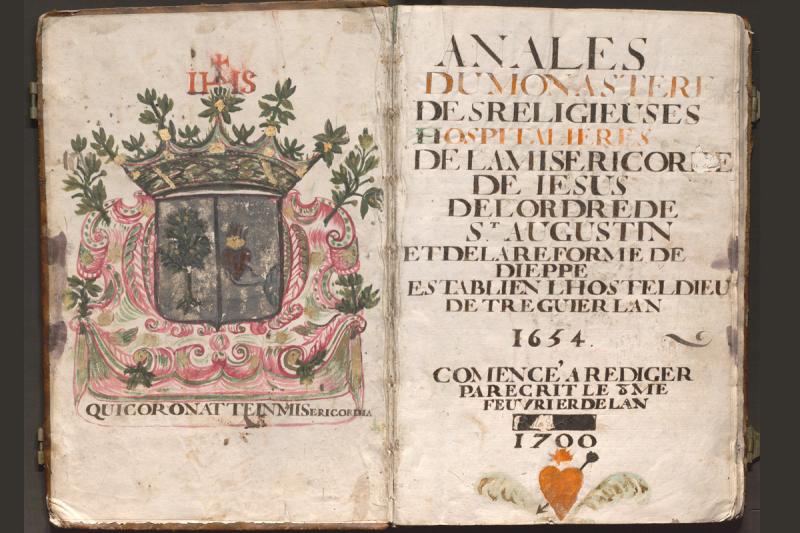 IHS
QUI CORONAT TE IN MISERICORDIA
ANALES
DU MONASTERE
DES RELIGIEUSES
HOSPITALIERES
DE LA MISERICORDE
DE IESUS
DE LORDRE DE
S.T AUGUSTIN
ET DE LA REFORME DE
DIEPPE
ESTABLI EN LHOSTEL DIEU
DE TREGUIER LAN
1654.
COMENCÉ A REDIGER
PAR ECRIT LE 8ME
FEUVRIER DE LAN
1700